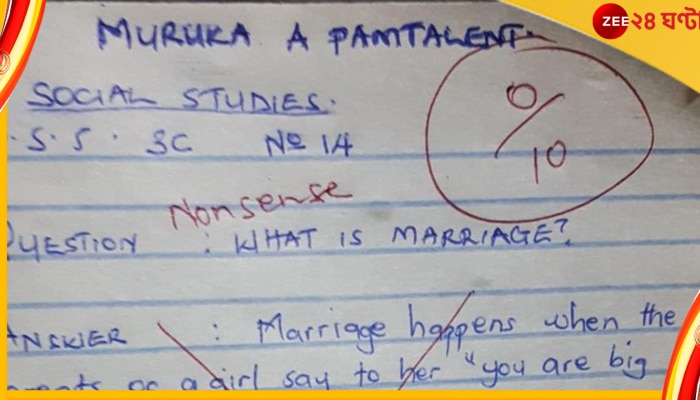 ZEE ২৪ ঘণ্টা
MURUKA A PAMTALENT.
SOCIAL STUDIES.
.S.S. 3C No 14
0/10
Nonsense
QUESTION : WHAT IS MARRIAGE?
ANSWER : Marriage happens when the
or a girl say to her "you are big